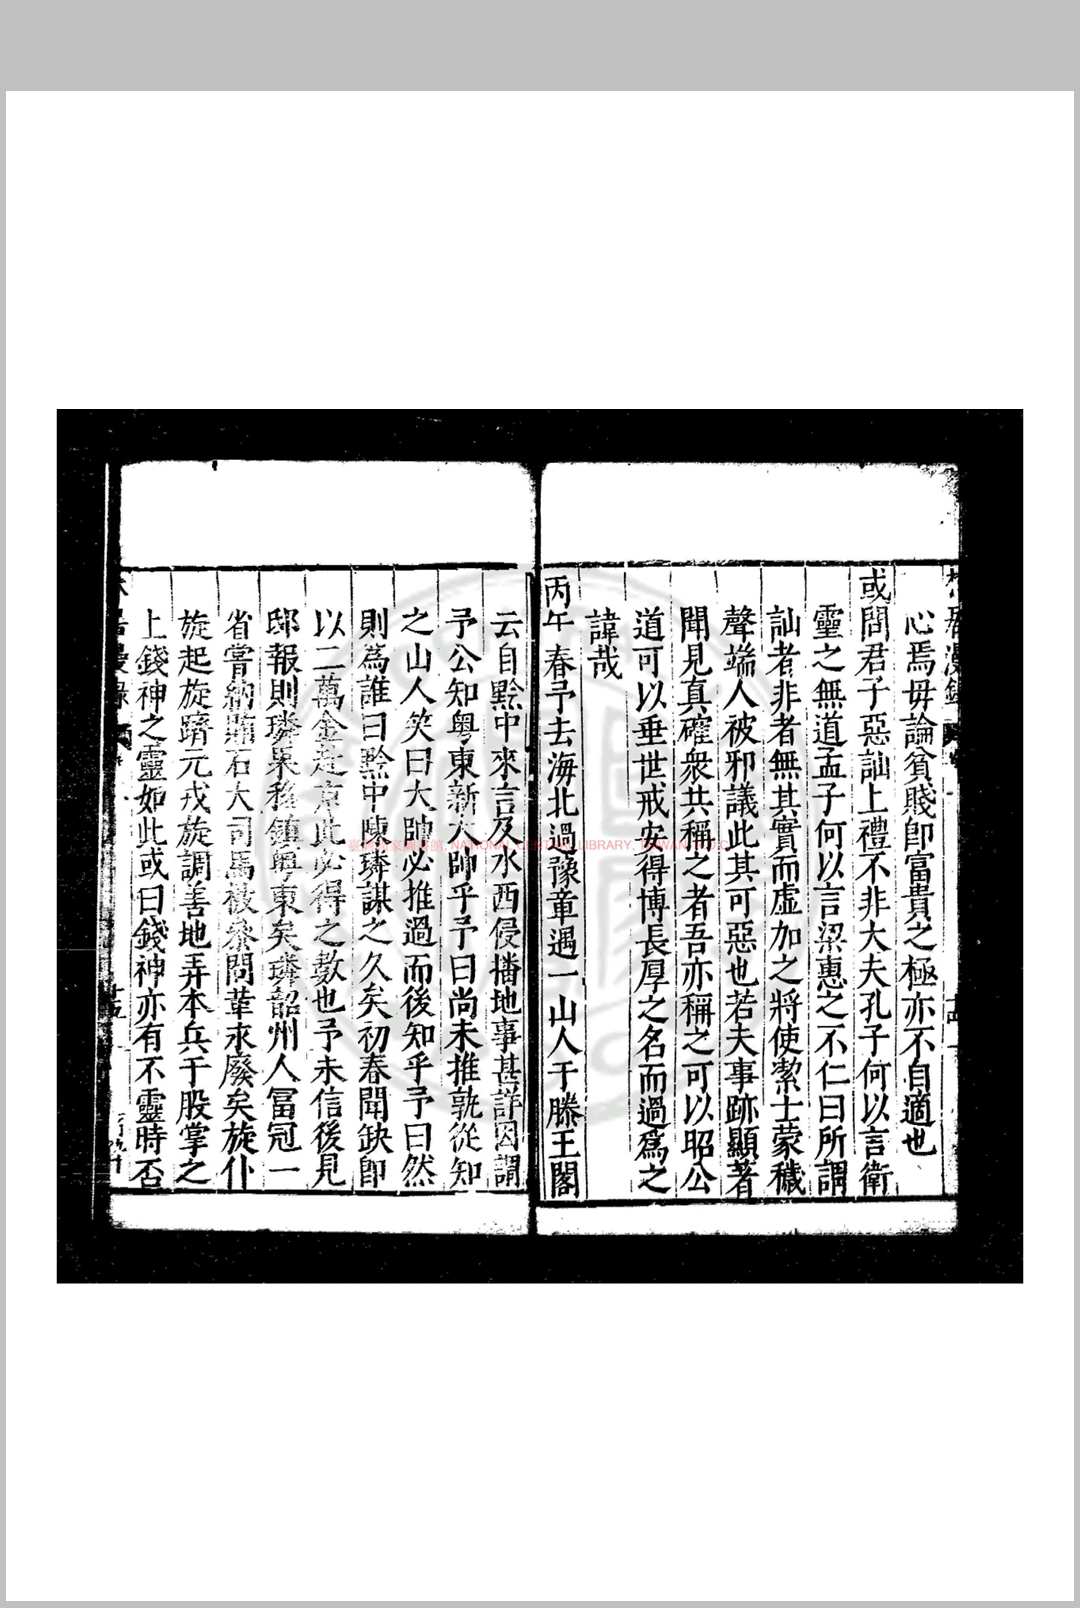 心焉毋論貧賤卽富貴之極亦不自適也
或問君子惡訕上禮不非大夫孔子何以言衛
靈之無道孟子何以言梁惠之不仁曰所謂
訕者非者無其實而虛加之將使潔士蒙穢
聲端人被邪議此其可惡也若夫事跡顯著
聞見真確衆共稱之者吾亦稱之可以昭公
道可以垂世戒安得博長厚之名而過爲之
諱哉
丙午春予去海北過豫章遇一山人于滕王閣
云自黔中來言及水西侵播地事甚詳因謂
予公知粵東新大帥乎予曰尚未推孰從知
之山人笑曰大帥必推過而後知乎予曰然
則爲誰曰黔中陳璘謀之久矣初春聞缺卽
以二萬金走京此必得之數也予未信後見
邸報則璘果移鎮粵東矣璘韶州人富冠一
省嘗納賂石大司馬被參問革永廢矣旋仆
旋起旋躋元戎旋調善地弄本兵于股掌之
上錢神之靈如此或曰錢神亦有不靈時否